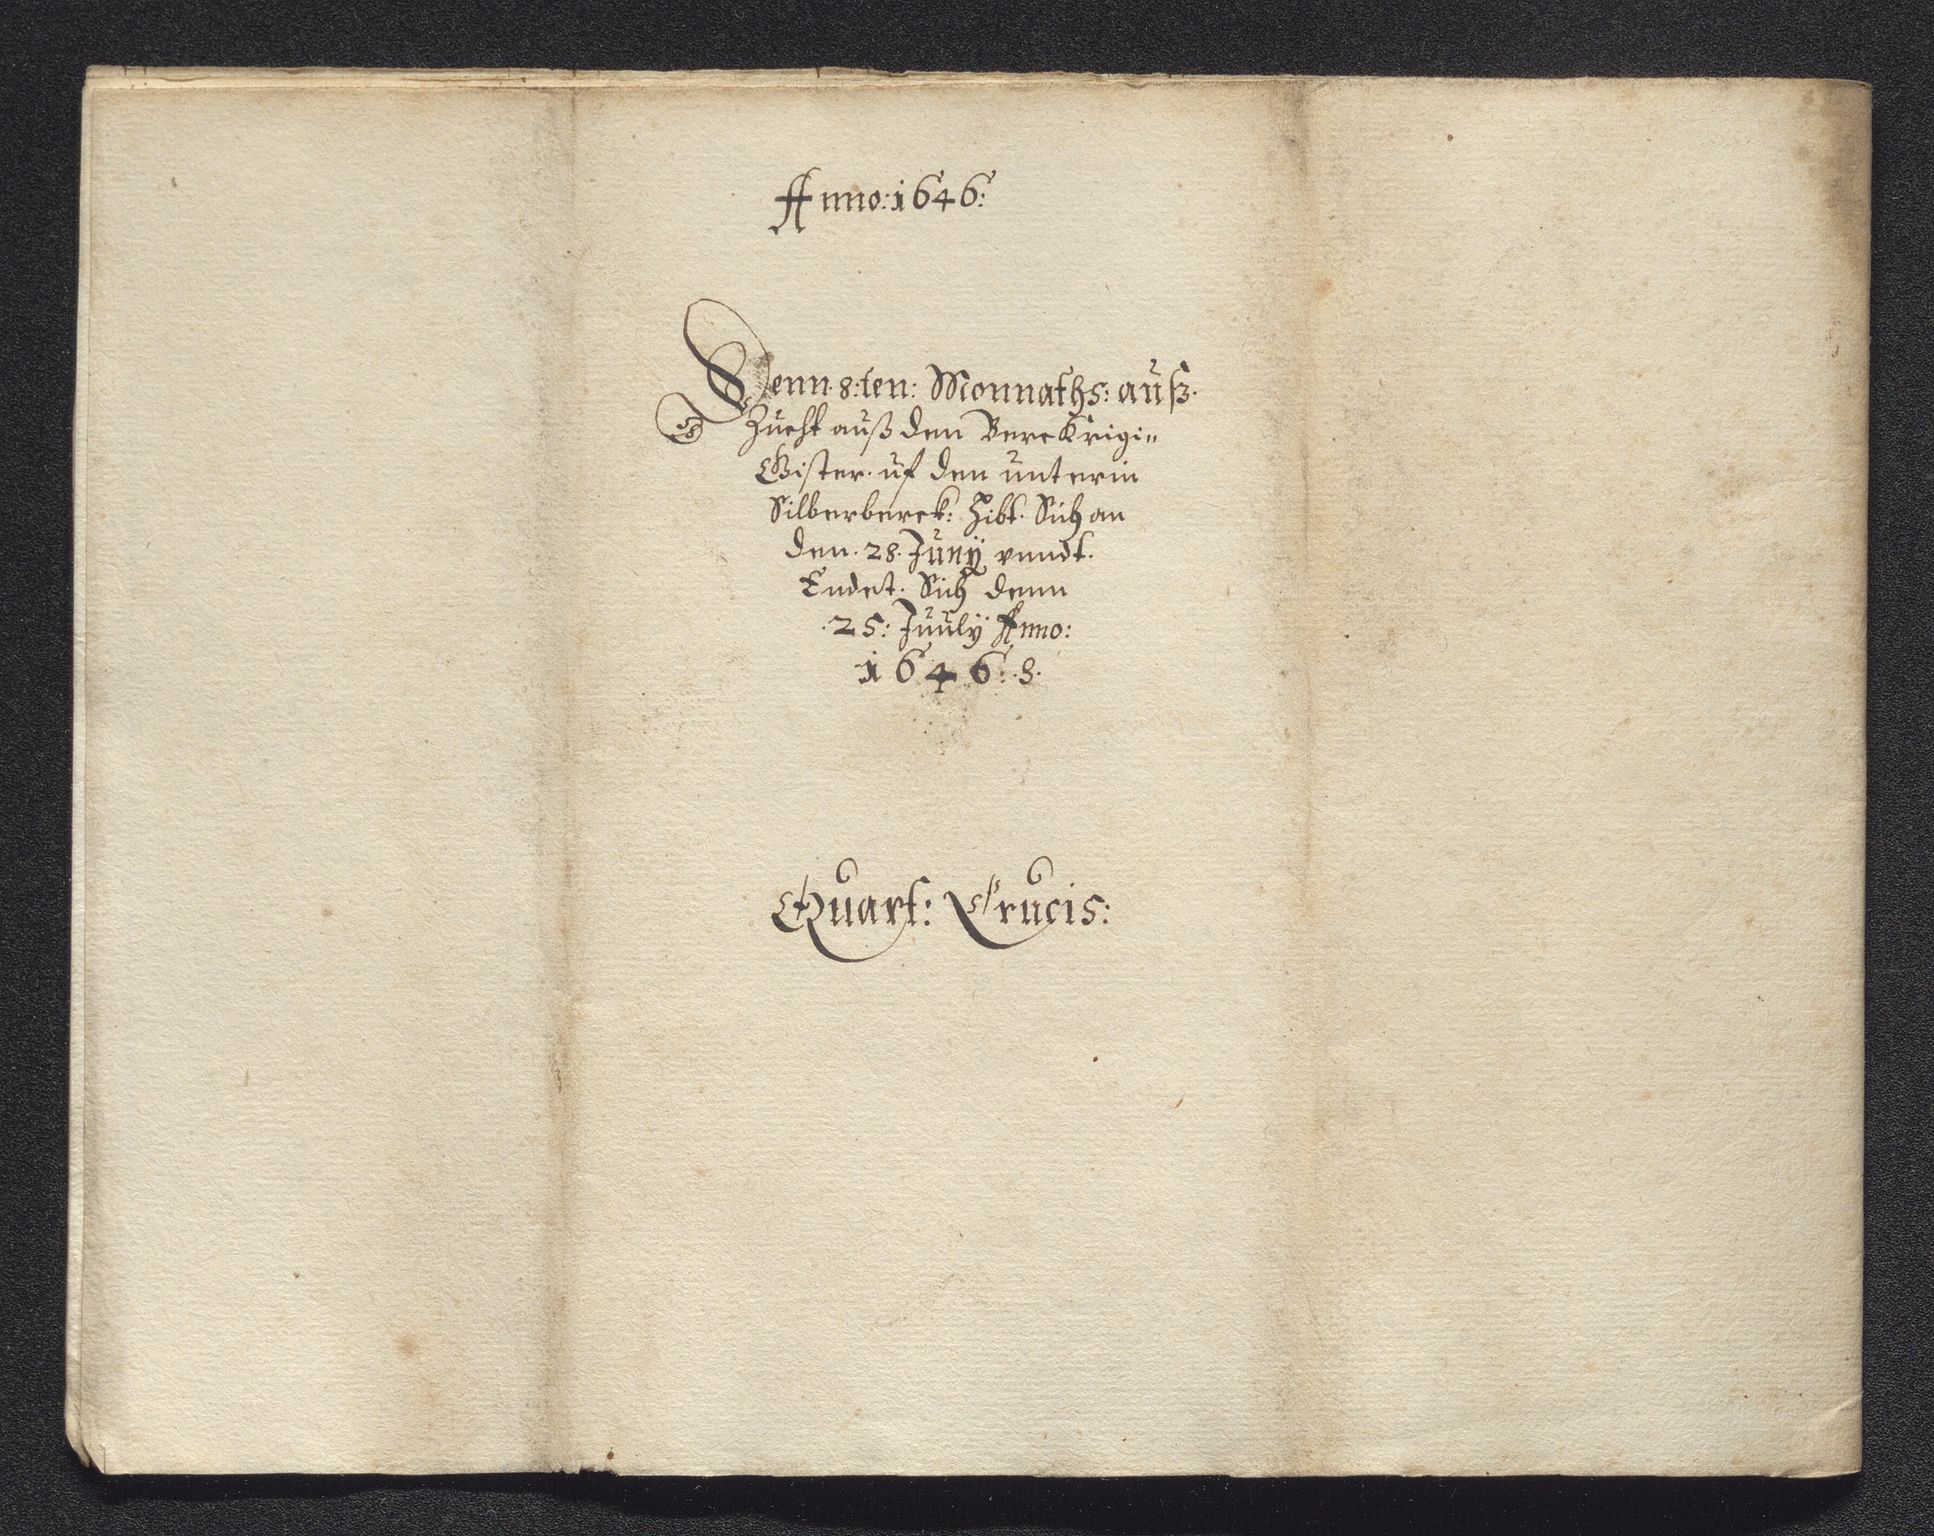 Anno: 1646:
Denn 8:ten: Monnaths: auß.
Zucht auß dem Berckrigi=
Gister. uf den unterin
Silberberck: Hibt. Sich an
den. 28. Juny vnndt.
Endet. Sich denn
.25: Juuly Anno:
1646: 8.
Quart: Crucis: